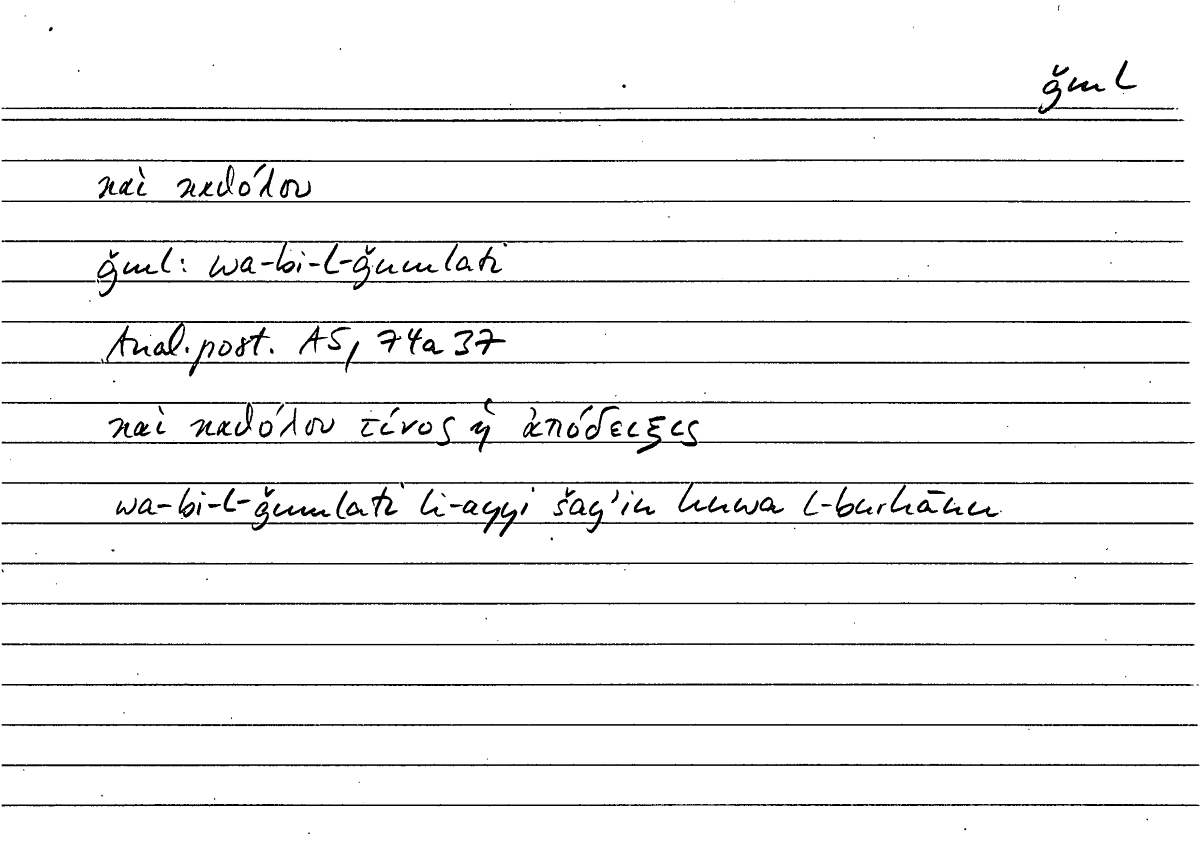 ǧml
καὶ καθόλου
ǧml: wa-bi-l-ǧumlati
Anal. post. A5, 74a37
καὶ καθόλου τίνος ἡ ἀπόδειξις
wa-bi-l-ǧumlati li-ayyi šayʾin huwa l-burhānu